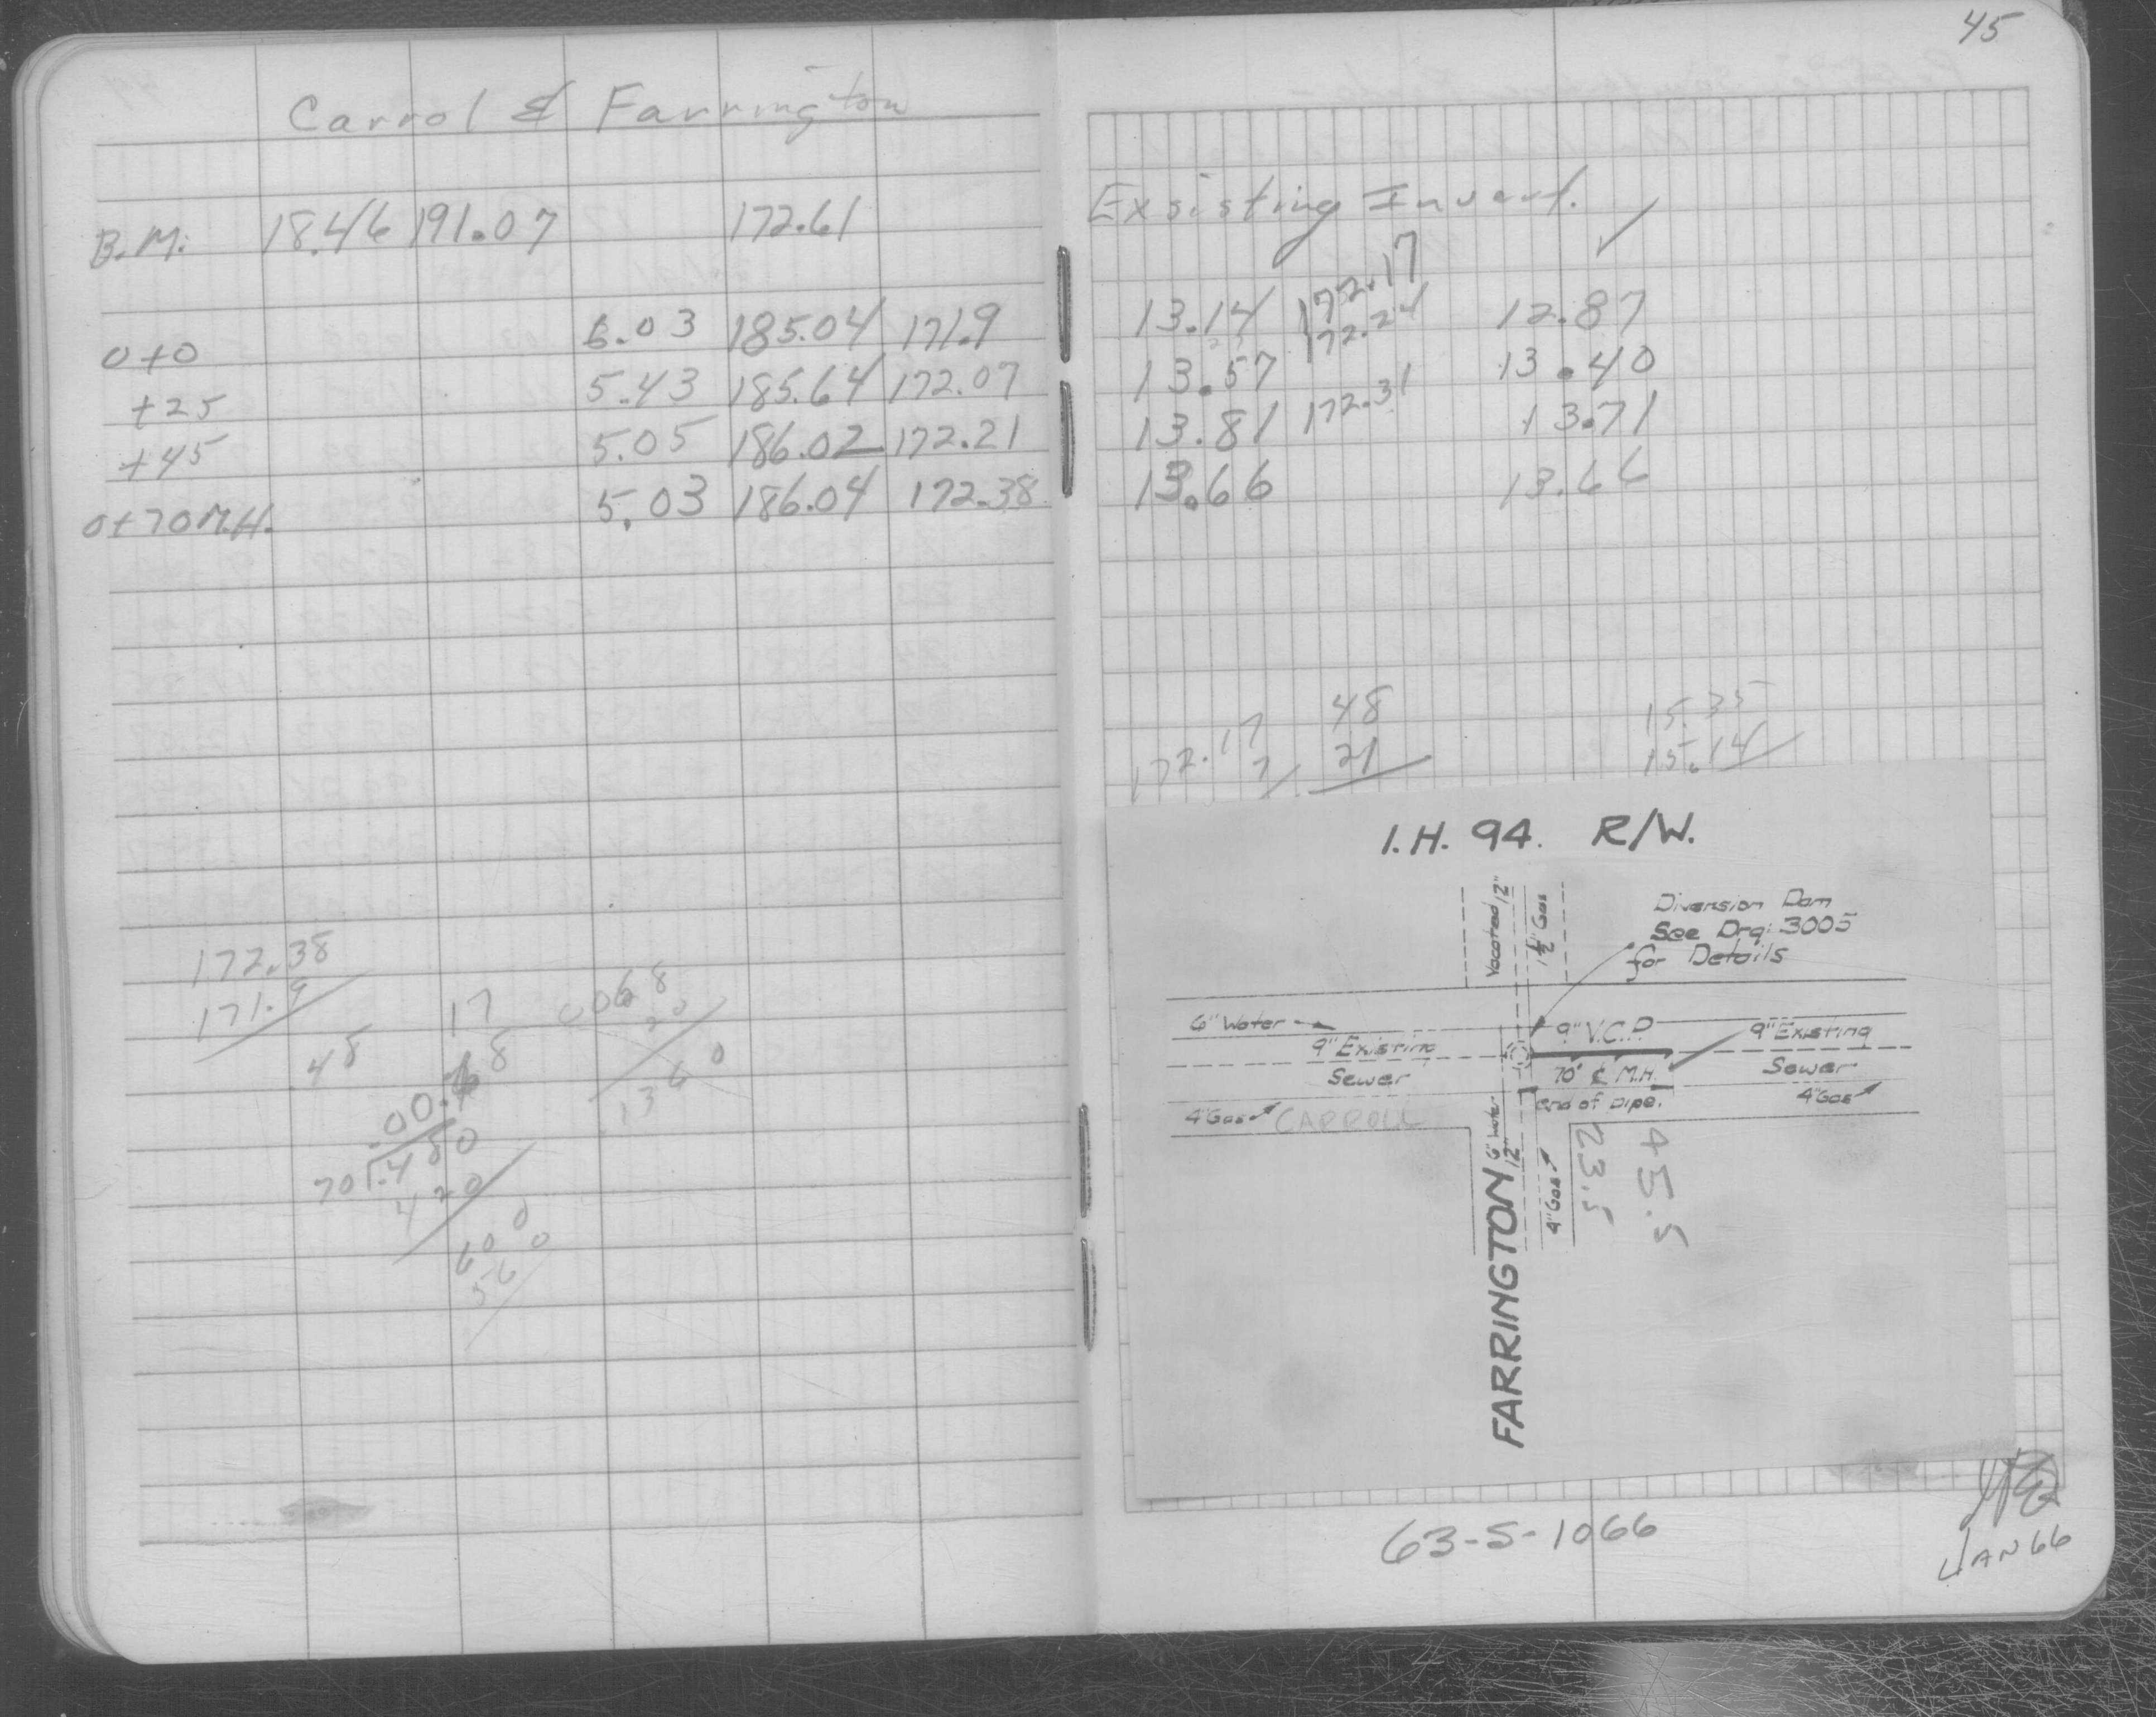 45
Carrol & Farrington
B.M. 18.46 191.07 172.61
Exsisting Invert. ✓
0+0 6.03 185.04 171.9 13.14 172.17 12.87
+25 5.43 185.64 172.07 13.57 172.24 13.40
+45 5.05 186.02 172.21 13.81 172.31 13.71
0+70 M.H. 5.03 186.04 172.38 13.66 13.66
172.17 48 15.35
7 21 15.14
172.38
171.9
48
17
00.68
70 .480
420
600
56
0068
20
1360
I.H. 94. R/W.
Vacated 12"
1½" Gas
Diversion Dam
See Drg. 3005
for Details
6" Water
9" Existing
Sewer
9" V.C.P.
70' ℄ M.H.
end of pipe.
9" Existing
Sewer
4" Gas
CARROLL
4" Gas
6" Water
12"
4" Gas
23.5
45.5
FARRINGTON
63-S-1066
JAN 66